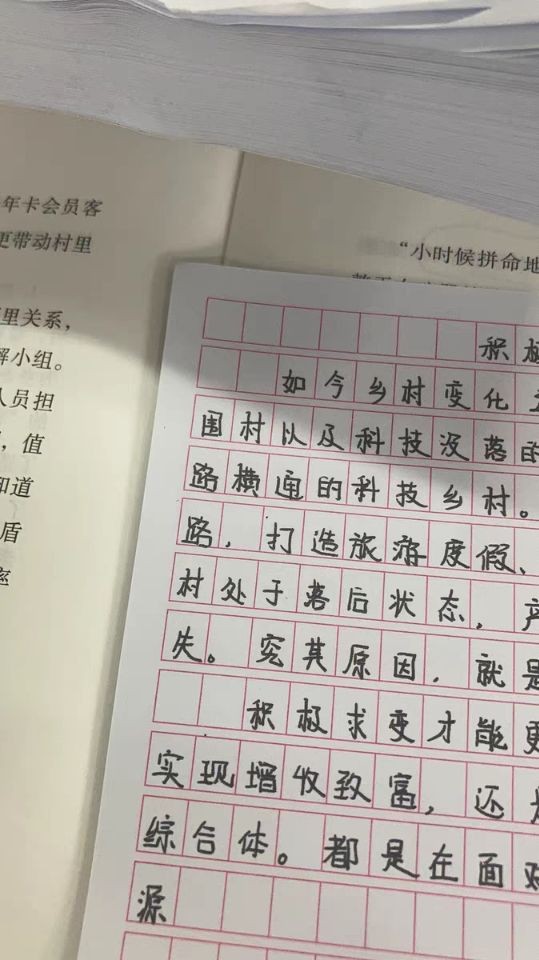 年卡会员客
更带动村里
里关系，
解小组。
人员担
，值
知道
盾
“小时候拼命地
积极
如今乡村变化
围村以及科技没落的
路横通的科技乡村。
路，打造旅游度假、
村处于落后状态，产
失。究其原因，就是
积极求变才能更
实现增收致富，还
综合体。都是在面对
源